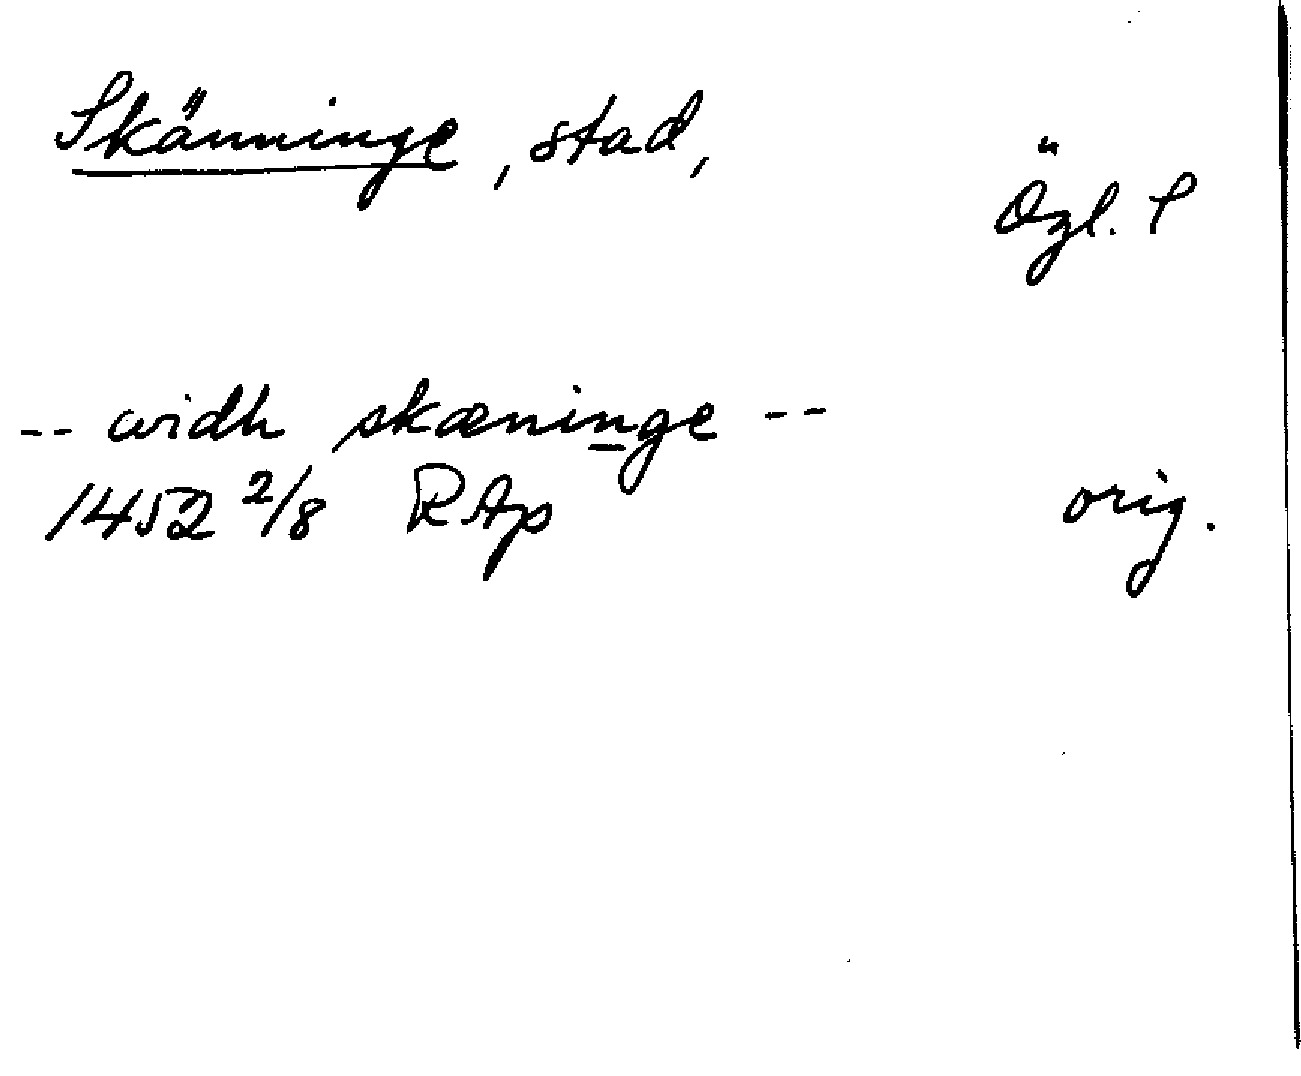 Skänninge, stad,
Ögl. S
-- widh skæninge --
1452 2/8 RAp
orig.